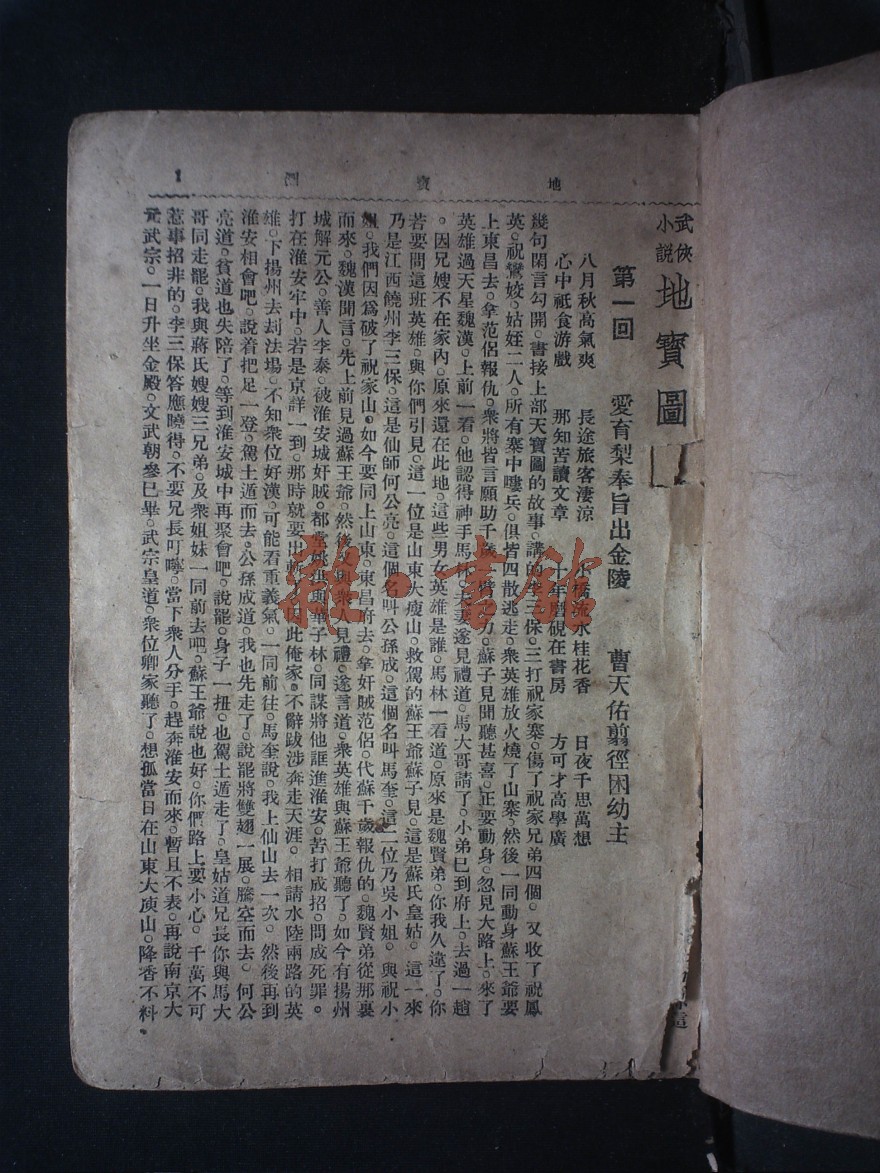 地寶圖
1
武俠小說 地寶圖
第一回 愛育梨奉旨出金陵 曹天佑翦徑困幼主
八月秋高氣爽 長途旅客淒涼 橋流水桂花香 日夜千思萬想
心中祇食游戲 那知苦讀文章 十年磨硯在書房 方可才高學廣
幾句閑言勾開。書接上部天寶圖的故事。講的李三保。三打祝家寨。傷了祝家兄弟四個。又收了祝鳳
英。祝鸞姣。姑姪二人。所有寨中嘍兵。俱皆四散逃走。衆英雄放火燒了山寨。然後一同動身蘇王爺要
上東昌去。拿范侶報仇。衆將皆言願助千歲一力。蘇子見聞聽甚喜。正要動身。忽見大路上。來了
英雄過天星魏漢。上前一看。他認得神手馬林。夫妻遂見禮道。馬大哥請了。小弟已到府上。去過一趟
。因兄嫂不在家內。原來還在此地。這些男女英雄是誰。馬林一看道。原來是魏賢弟。你我久違了。你
若要問這班英雄。與你們引見。這一位是山東大瘦山。救駕的蘇王爺蘇子見。這是蘇氏皇姑。這一來
乃是江西饒州李三保。這是仙師何公亮。這個名叫公孫成。這個名叫馬奎。這二位乃吳小姐。與祝小
姐。我們因爲破了祝家山。如今要同上山東。東昌府去。拿奸賊范侶。代蘇千歲報仇的。魏賢弟從那裏
而來。魏漢聞言。先上前見過蘇王爺。然後又與衆人見禮。遂言道。衆英雄與蘇王爺聽了。如今有揚州
城解元公。善人李泰。被淮安城奸賊。都堂姚洪與華子林。同謀將他誆進淮安。苦打成招。問成死罪。
打在淮安牢中。若是京詳一到。那時就要出斬了。因此俺家。不辭跋涉奔走天涯。相請水陸兩路的英
雄。下揚州去刦法場。不知衆位好漢。可能看重義氣。一同前往。馬奎說。我上仙山去一次。然後再到
淮安相會吧。說着把足一登。駕土遁而去。公孫成道。我也先走了。說罷將雙翅一展。騰空而去。何公
亮道。貧道也失陪了。等到淮安城中再聚會吧。說罷。身子一扭。也駕土遁走了。皇姑道兄長你與馬大
哥同走罷。我與蔣氏嫂嫂三兄弟。及衆姐妹一同前去吧。蘇王爺說也好。你們路上要小心。千萬不可
惹事招非的。李三保答應曉得。不要兄長叮嚀。當下衆人分手。趕奔淮安而來。暫且不表。再說南京大
元武宗。一日升坐金殿。文武朝參已畢。武宗皇道。衆位卿家聽了。想孤當日在山東大庾山。降香不料
雜·書館